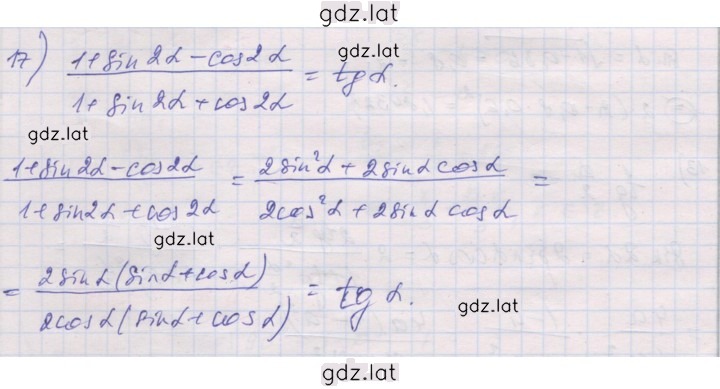 gdz.lat
17) (1+sin2α-cos2α)/(1+sin2α+cos2α) = tg α.
gdz.lat
gdz.lat
(1+sin2α-cos2α)/(1+sin2α+cos2α) = (2sin²α+2sinαcosα)/(2cos²α+2sinαcosα) =
gdz.lat
= (2sinα(sinα+cosα))/(2cosα(sinα+cosα)) = tg α.
gdz.lat
gdz.lat